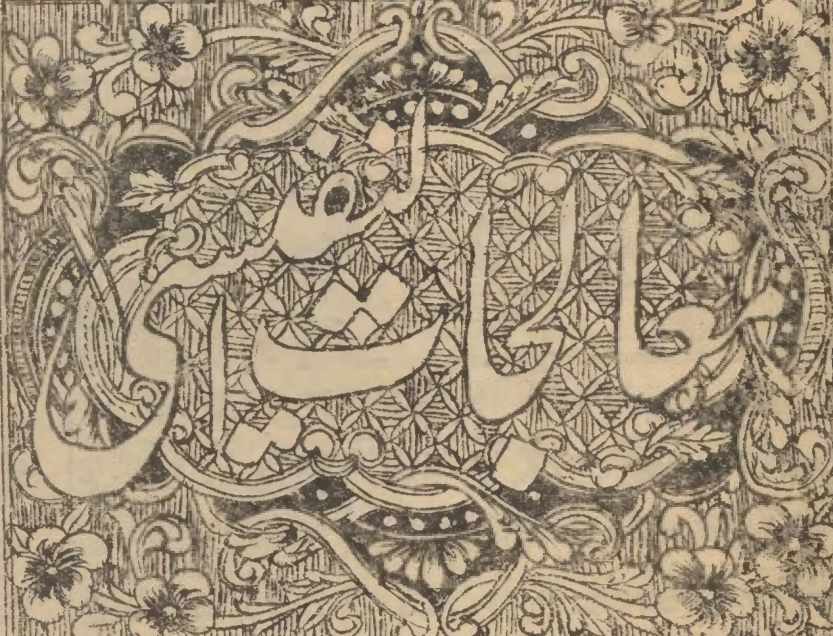 معالجات النفیسی